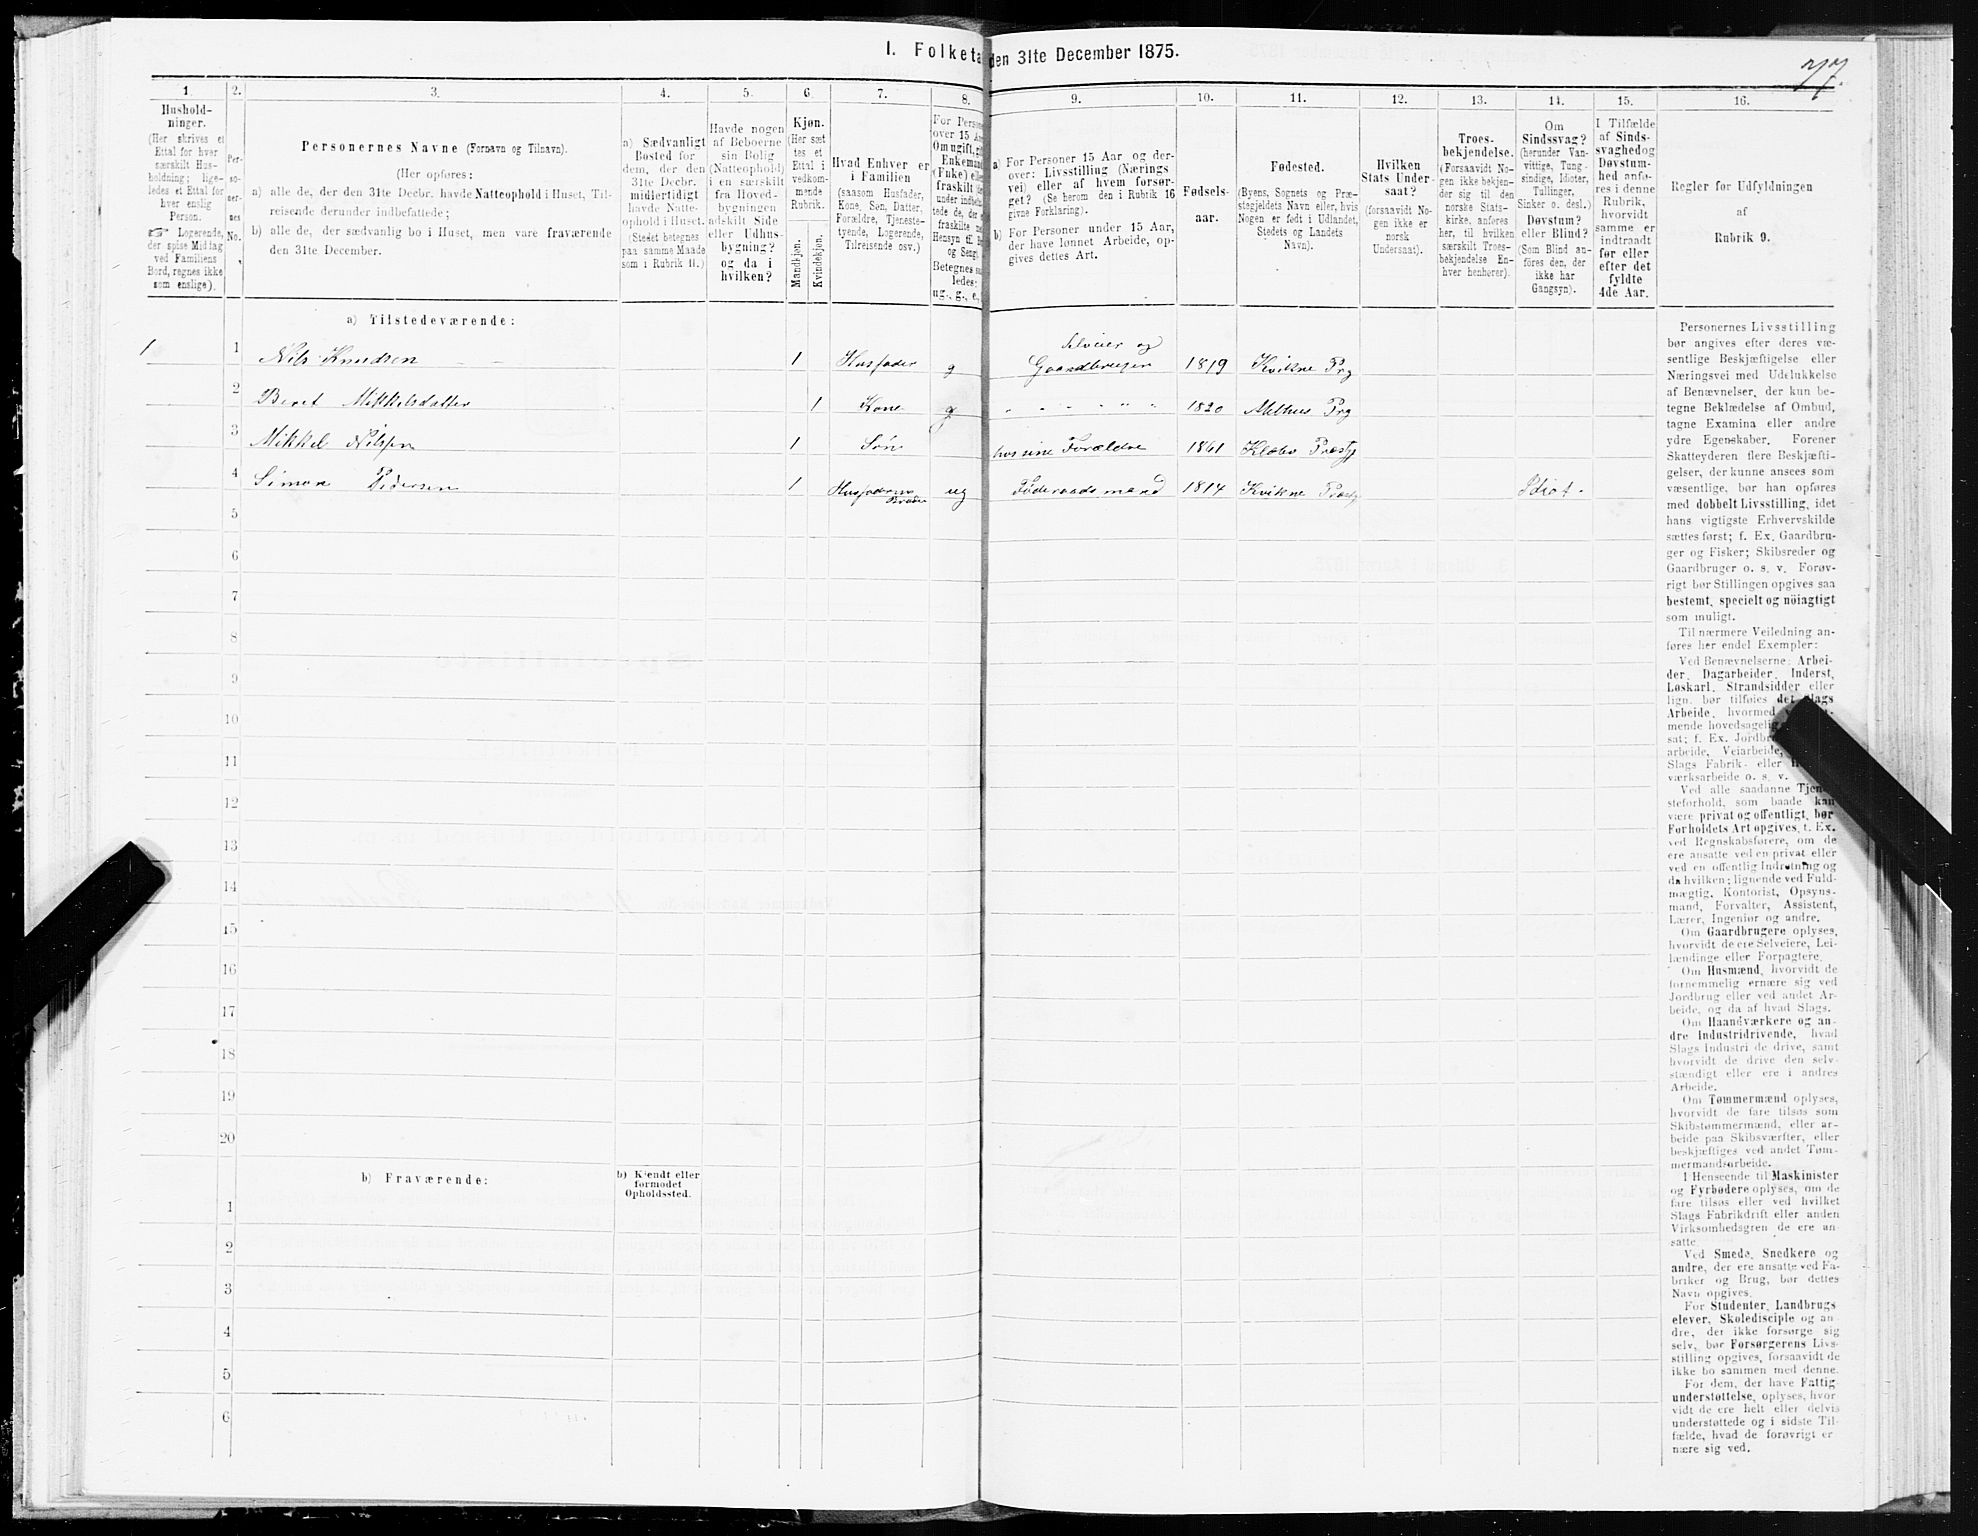 I. Folketa den 31te December 1875.
77.
1.
Hushold-
ninger.
(Her skrives et
Ettal for hver
særskilt Hus-
holdning; lige-
ledes et Ettal for
hver enslig
Person.
☞ Logerende,
der spise Middag
ved Familiens
Bord, regnes ikke
som enslige).
2.
Per-
so-
ner-
nes
No.
3.
Personernes Navne (Fornavn og Tilnavn).
(Her opføres:
a) alle de, der den 31te Decbr. havde Natteophold i Huset, Til-
reisende derunder indbefattede;
b) alle de, der sædvanlig bo i Huset, men vare fraværende
den 31te December.
4.
a) Sædvanligt
Bosted for
dem, der den
31te Decbr.
midlertidigt
havde Natte-
ophold i Huset.
(Stedet betegnes
paa samme Maade
som i Rubrik 11.)
5.
Havde nogen
af Beboerne
sin Bolig
(Natteophold)
i en særskilt
fra Hoved-
bygningen
adskilt Side
eller Udhus-
bygning?
og da i
hvilken?
6.
Kjøn.
(Her sæt
tes et
Ettal i
vedkom-
mende
Rubrik.
Mandkjøn.
Kvindekjøn.
7.
Hvad Enhver er
i Familien
(saasom Husfader,
Kone, Søn, Datter,
Forældre, Tjeneste-
tyende, Logerende,
Tilreisende osv.)
8.
For Person
over 15 Aa
Om ugift, gif
Enkemand
(Enke) elle
fraskilt
under indbe
tede de, der
fraskilte m
Hensyn til B
og Seng).
Betegnes sa
ledes:
ug., g., e.,
9.
a) For Personer 15 Aar og der-
over: Livsstilling (Nærings
vei) eller af hvem forsør-
get? (Se herom den i Rubrik 16
givne Forklaring).
b) For Personer under 15 Aar,
der have lønnet Arbeide, op-
gives dettes Art.
10.
Fødsels-
aar.
11.
Fødested.
(Byens, Sognets og Præ-
stegjeldets Navn eller, hvis
Nogen er født i Udlandet,
Stedets og Landets
Navn).
12.
Hvilken
Stats Under-
saat?
(forsaavidt No-
gen ikke er
norsk
Undersaat).
13.
Troes-
bekjendelse.
(Forsaavidt No-
gen ikke bekjen-
der sig til den
norske Stats-
kirke, anføres
her, til hvilken
særskilt Troes-
bekjendelse En-
hver henhører).
14.
Om
Sindssvag?
(herunder Van-
vittige, Tung-
sindige, Idioter,
Tullinger,
Sinker o. desl.)
Døvstum?
eller Blind?
(Som Blind an-
føres den, der
ikke har
Gangsyn).
15.
I Tilfælde
af Sinds-
svaghed og
Døvstum-
hed anfø-
res i denne
Rubrik,
hvorvidt
samme er
indtraadt
før eller
efter det
fyldte
4de Aar.
16.
Regler for Udfyldningen
af
Rubrik 9.
a) Tilstedeværende:
1 1 Nils Knudsen 1 Husfader g Selveier og Gaardbruger 1819 Kvikne Prg
2 Beret Mikkelsdatter 1 Kone g " " " " " 1820 Melhus Prg
3 Mikkel Nilsen 1 Søn hos sine Forældre 1861 Klæbo Præstg
4 Simon Pedersen 1 Husfaderens Broder ug Føderaadsmand 1814 Kvikne Præstg Idiot.
5
6
7
8
9
10
11
12
13
14
15
16
17
18
19
20
b) Fraværende:
b) Kjendt eller
formodet
Opholdssted.
1
2
3
4
5
6
Personernes Livsstilling
bør angives efter deres væ-
sentlige Beskjæftigelse eller
Næringsvei med Udelukkelse
af Benævnelser, der kun be-
tegne Beklædelse af Ombud,
tagne Examina eller andre
ydre Egenskaber. Forener
Skatteyderen flere Beskjæfti-
gelser, der kunne ansees som
væsentlige, bør han opføres
med dobbelt Livsstilling, idet
hans vigtigste Erhvervskilde
sættes først; f. Ex. Gaardbru-
ger og Fisker; Skibsreder og
Gaardbruger o. s. v. Forøv-
rigt bør Stillingen opgives saa
bestemt, specielt og nöiagtigt
som muligt.
Til nærmere Veiledning an-
føres her endel Exempler:
Ved Benævnelserne: Arbei-
der, Dagarbeider, Inderst,
Løskarl, Strandsidder eller
lign. bør tilføies det Slags
Arbeide, hvormed
mende hovedsagelig
sat; f. Ex. Jordbr
arbeide, Veiarbeide,
Slags Fabrik- eller
værksarbeide o. s. v.
Ved alle saadanne Tjene-
steforhold, som baade kan
være privat og offentligt, bør
Forholdets Art opgives, t. Ex.
ved Regnskabsførere, om de
ere ansatte ved en privat eller
ved en offentlig Indretning og
da hvilken; lignende ved Fuld-
mægtig, Kontorist, Opsyns-
mand, Forvalter, Assistent,
Lærer, Ingeniør og andre.
Om Gaardbrugere oplyses,
hvorvidt de ere Selveiere, Lei-
lændinge eller Forpagtere.
Om Husmænd, hvorvidt de
fornemmelig ernære sig ved
Jordbrug eller ved andet Ar-
beide, og da af hvad Slags.
Om Haandværkere og an-
dre Industridrivende, hvad
Slags Industri de drive, samt
hvorvidt de drive den selv-
stændigt eller ere i andres
Arbeide.
Om Tømmermænd oplyses,
hvorvidt de fare tilsøs som
Skibstømmermænd, eller ar-
beide paa Skibsværfter, eller
beskjæftiges ved andet Tøm-
mermandsarbeide.
I Henseende til Maskinister
og Fyrbødere oplyses, om de
fare tilsøs eller ved hvilket
Slags Fabrikdrift eller anden
Virksomhedsgren de ere an-
satte.
Ved Smede, Snedkere og
andre, der ere ansatte ved Fa-
briker og Brug, bør dettes
Navn opgives.
For Studenter, Landbrugs
elever, Skoledisciple og an-
dre, der ikke forsørge sig
selv, bør Forsørgerens Livs-
stilling opgives, forsaavidt de
ikke bo sammen med denne.
For dem, der have Fattig-
understøttelse, oplyses, hvor
vidt de ere helt eller delvis
understøttede og i sidste Til-
fælde, hvad de forøvrigt er
nære sig ved.